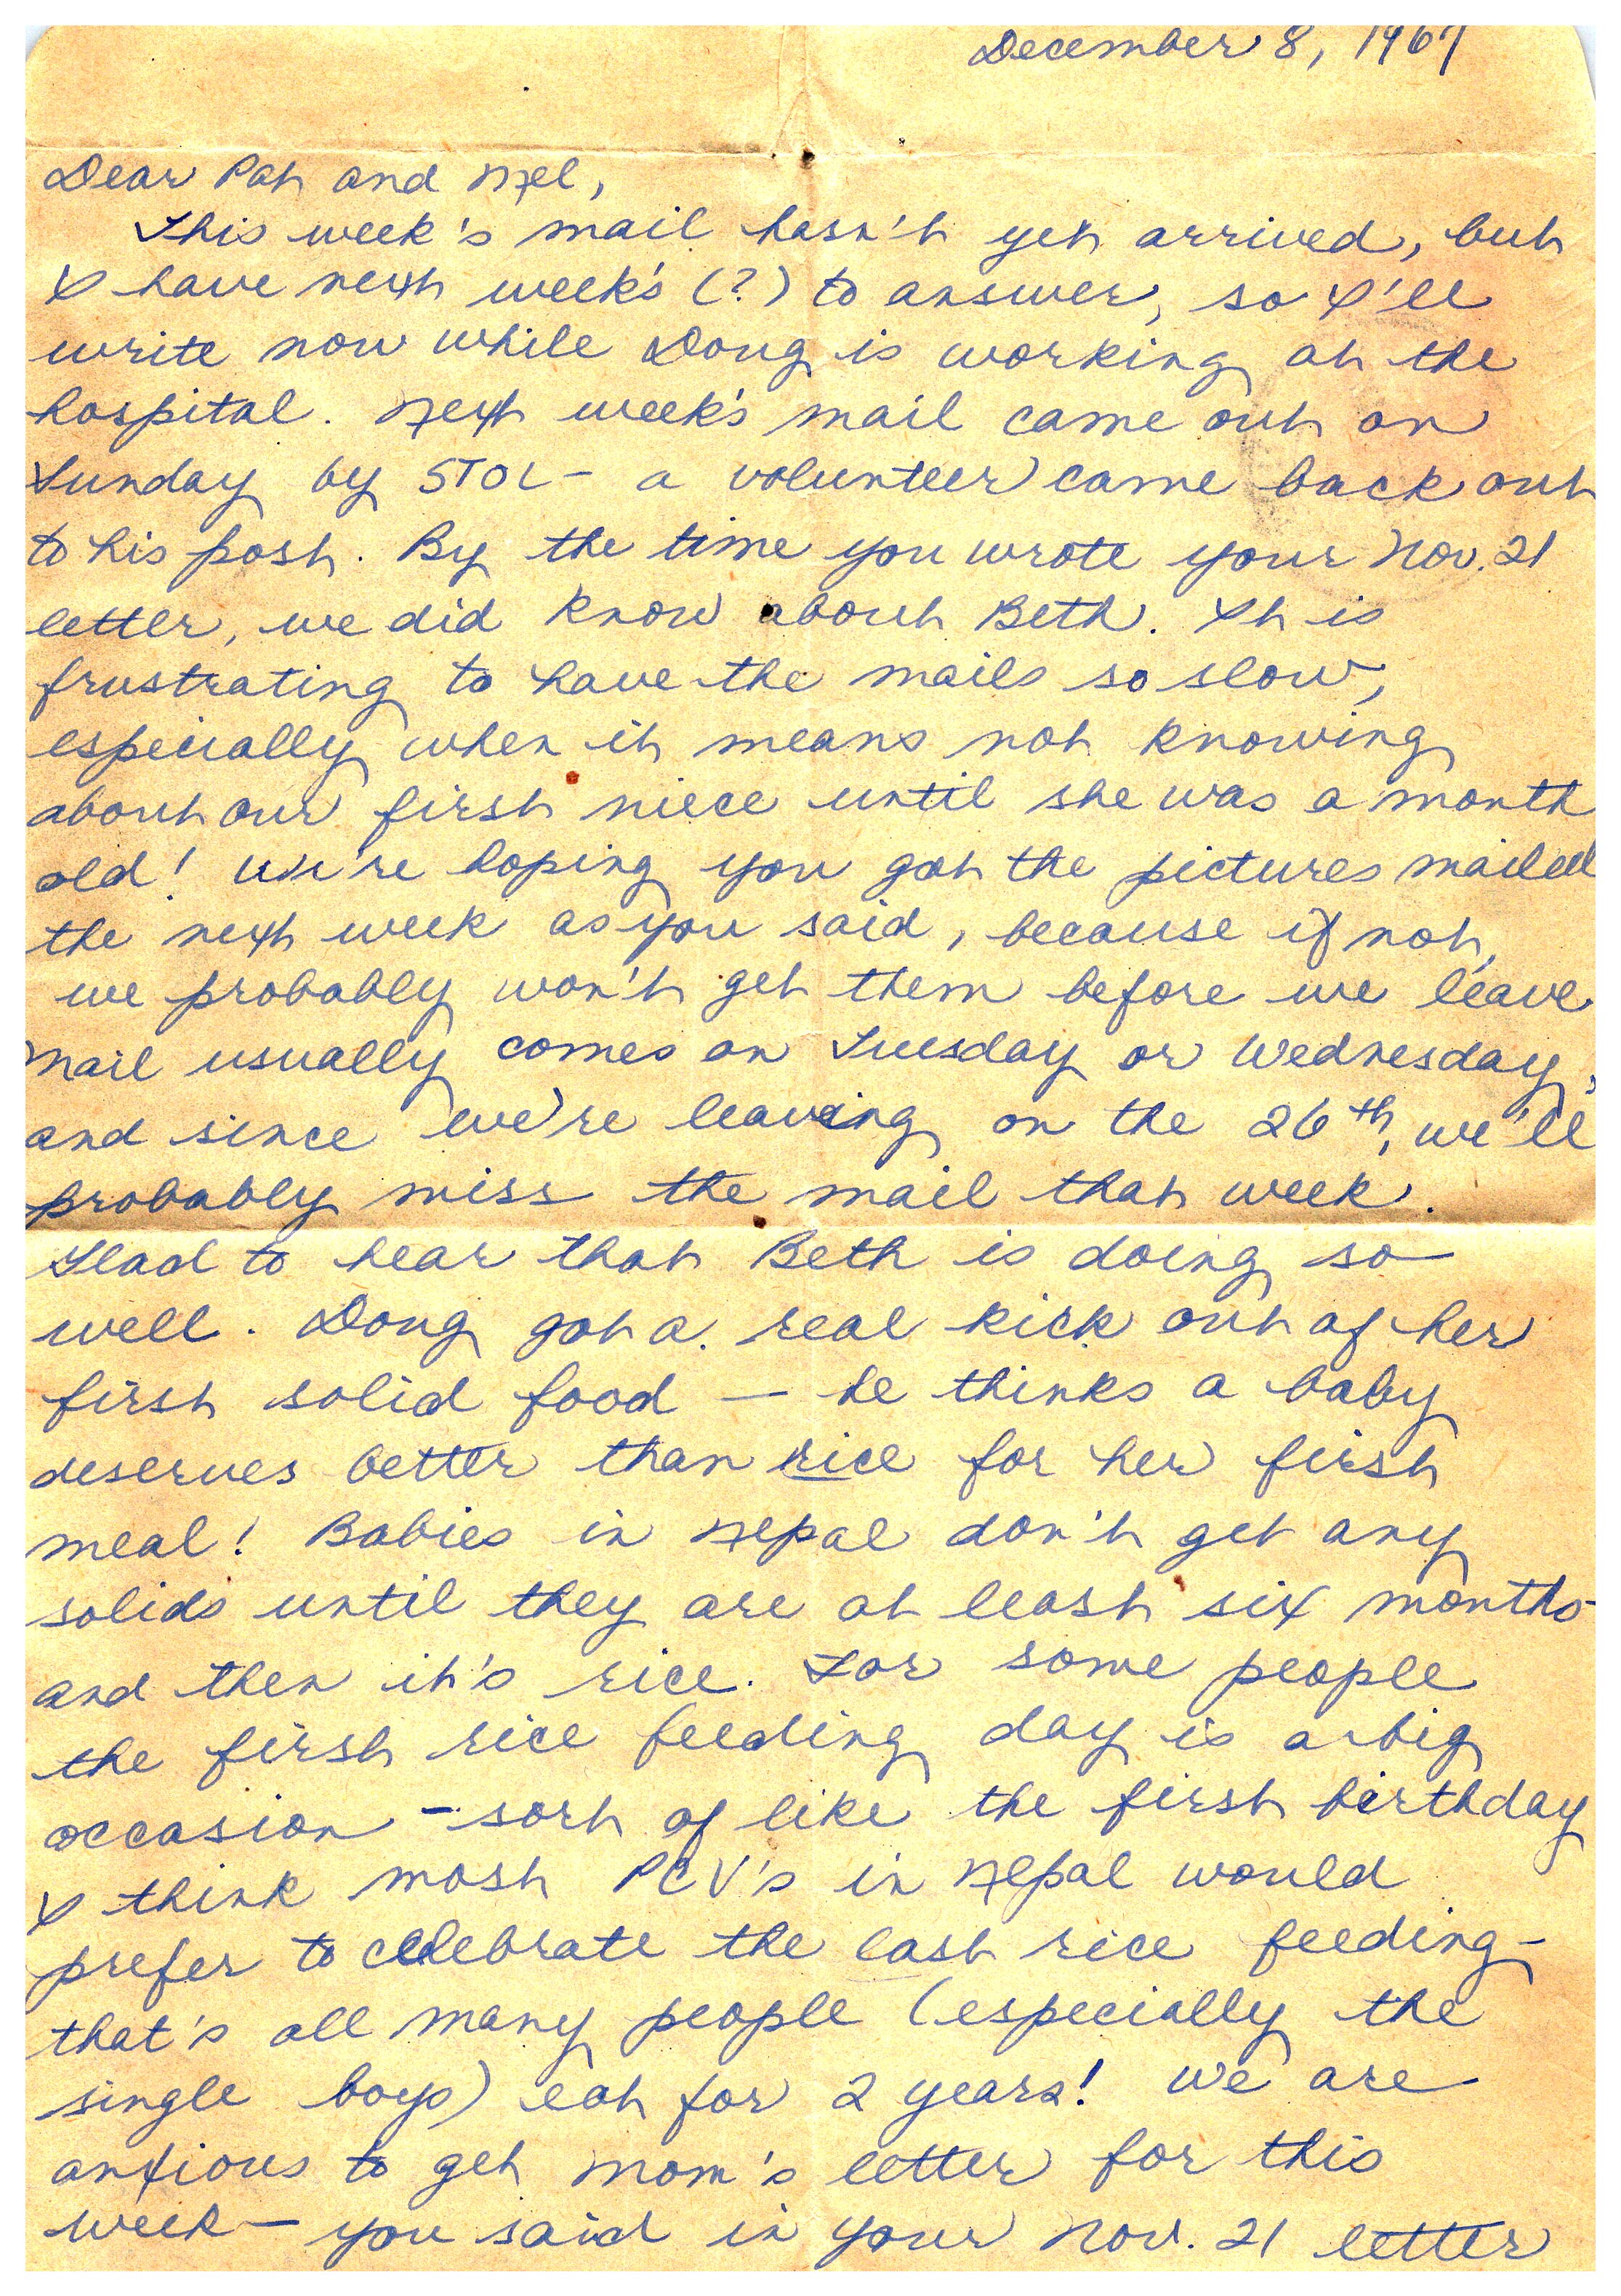 December 8, 1967
Dear Pat and Mel,
This week's mail hasn't yet arrived, but
I have next week's (?) to answer, so I'll
write now while Doug is working at the
hospital. Next week's mail came out on
Sunday by STOL - a volunteer came back out
to his post. By the time you wrote your Nov. 21
letter, we did know about Beth. It is
frustrating to have the mails so slow,
especially when it means not knowing
about our first niece until she was a month
old! We're hoping you got the pictures mailed
the next week as you said, because if not,
we probably won't get them before we leave.
Mail usually comes on Tuesday or Wednesday,
and since we're leaving on the 26th, we'll
probably miss the mail that week.
Glad to hear that Beth is doing so
well. Doug got a real kick out of her
first solid food — he thinks a baby
deserves better than rice for her first
meal! Babies in Nepal don't get any
solids until they are at least six months
and then it's rice. For some people
the first rice feeding day is a big
occasion - sort of like the first birthday
I think most PCV's in Nepal would
prefer to celebrate the last rice feeding -
that's all many people (especially the
single boys) eat for 2 years! We are
anxious to get Mom's letter for this
week — you said in your Nov. 21 letter